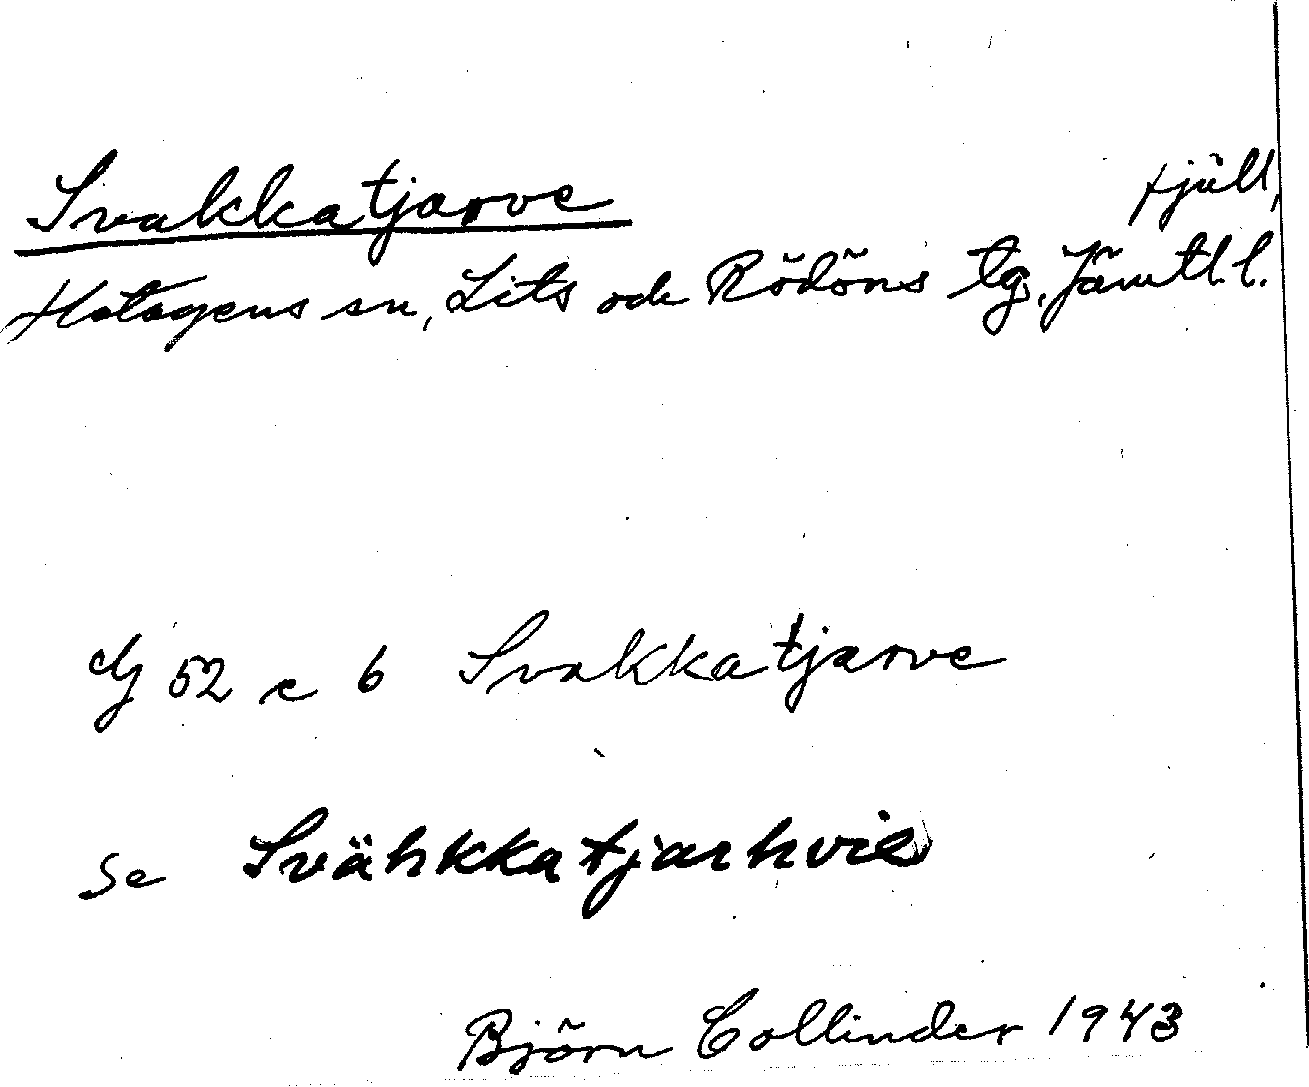 Svakkatjarve fjäll,
Hotagens sn, Lits och Rödöns tg. Jämtl. l.
dg 52 c 6 Svakkatjarve
Se Svähkkatjarhvie
Björn Collinder 1943